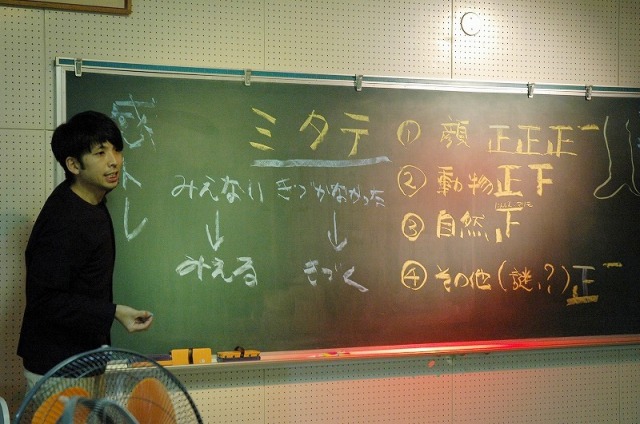 感トレ
ミタテ
みえない きづかなかった
↓ ↓
みえる きづく
① 顔 正正正一
② 動物 正下
③ 自然 下
④ その他(謎!?) 正一